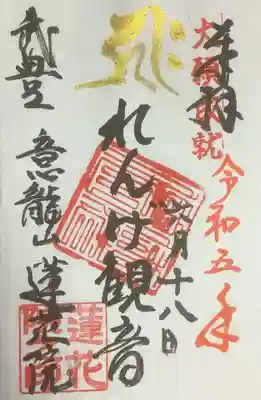 奉拝
大願成就
令和五年
月十八日
れんげ観音
武豊
意龍山 蓮花院
蓮花